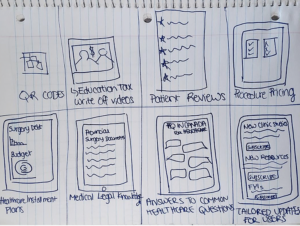 QR CODES
Education Tax
write off videos
Patient Reviews
Procedure Pricing
Surgery Date
Budget
Healthcare Installment
Plans
Financial
Surgery Documents
Medical Legal Knowledge
IN CANADA
ANSWERS TO COMMON
HEALTHCARE QUESTIONS
NEW CLINIC
SUBSCRIBE
NEW RESOURCES
SUBSCRIBE
TAILORED UPDATES
FOR USERS